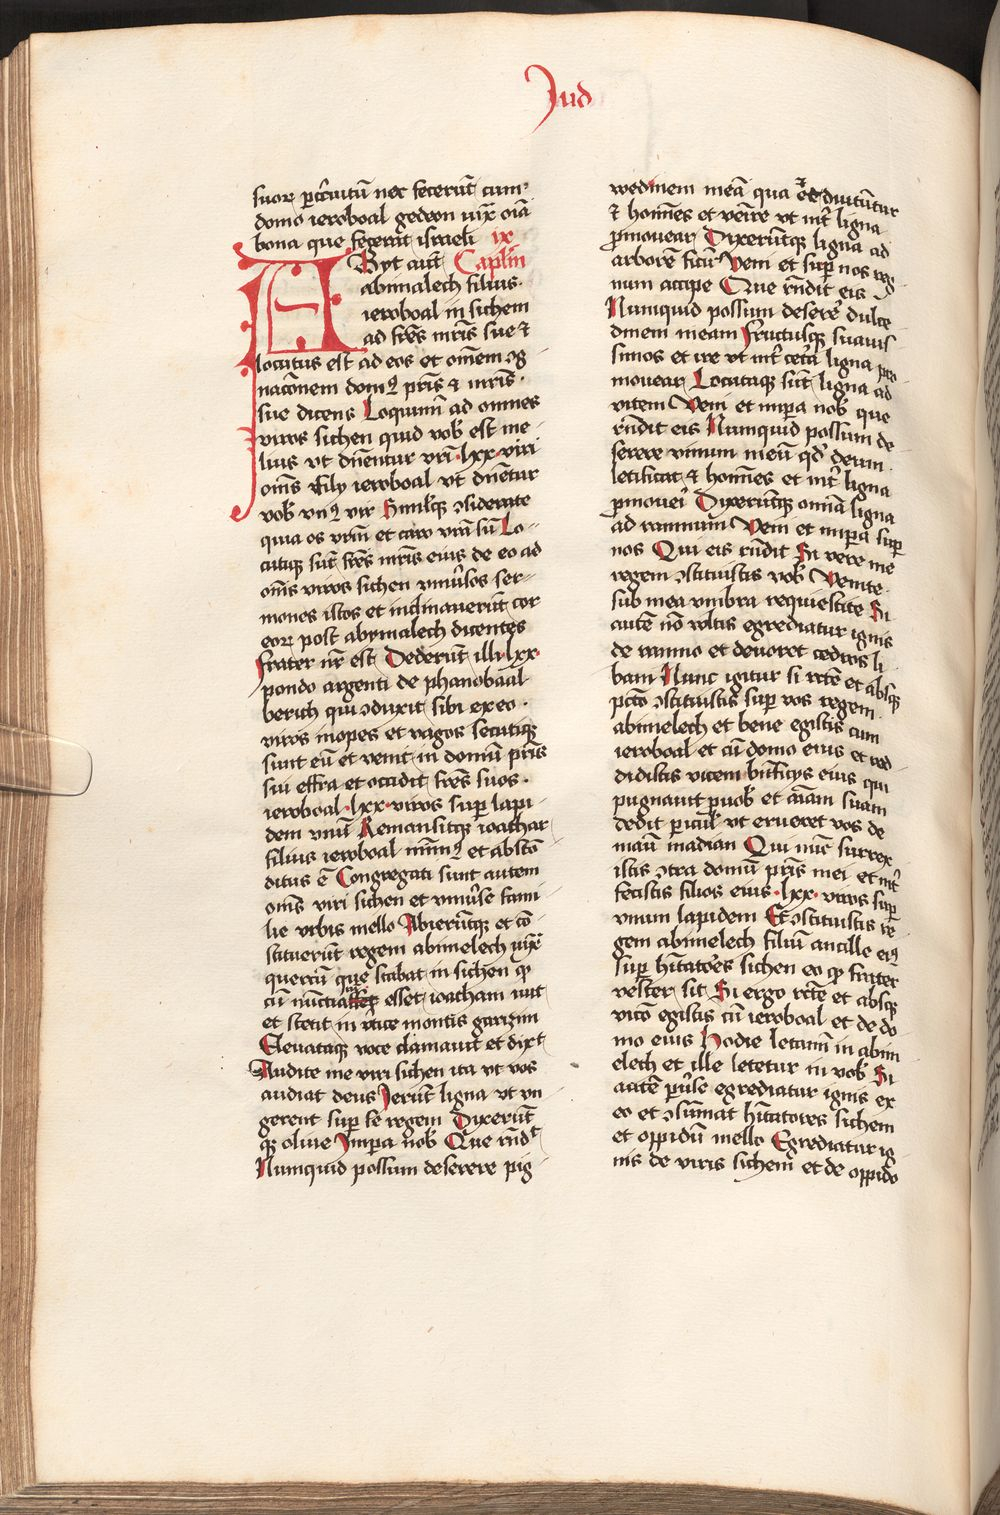 Jud
suoꝝ ꝑ circuitū nec fecerūt cum
domo ieroboal gedeon iuxͣ oīa
bona que fecerat israeli ix
Abyt aūt Caplm̄
abimalech filius
ieroboal in sichem
ad frēs mr̄is sue ⁊
locutus est ad eos et om̄em ↄg
nacōnem domꝰ pr̄is & mr̄is
sue dicens Loquimī ad omnes
viros sichen quid vob̄ est me
lius vt dn̄entur vr̄i lxx viri
om̄s filÿ ieroboal vt dn̄etur
vob̄ vnꝰ vir Simulqꝫ ↄsiderate
quia os vrm̄ et caro vrā sū Lo
cutiqꝫ sūt frēs mr̄is eius de eo ad
om̄s viros sichen vniūsos ser
mones istos et inclinauerūt cor
eoꝝ post abymalech dicentes
frater nr̄ est Dederūt illi lxx
pondo argenti de phano baal
berich qui ↄduxit sibi ex eo
viros inopes et vagos secutiqꝫ
sunt eū et venit in domū pr̄is
sui effra et occidit frēs suos
ieroboal lxx viros sup̄ lapi
dem vnū Remansitqꝫ ioathar
filius ieroboal mīmꝰ et abscō
ditus ē Congregati sunt autem
om̄s viri sichen et vniūse fami
lie vrbis mello Abierūtqꝫ et cō
stituerūt regem abimelech iuxͣ
quercū que stabat in sichen qͦ
cū nūctiatū esset ioatham iuit
et stetit in v̄tice montis garizim
Eleuataqꝫ voce clamauit et dixt
Audite me viri sichen ita vt vos
audiat deus Ierūt ligna vt vn
gerent sup̄ se regem Dixerūt
qꝫ oliue Impera nob̄ Que rn̄dt
Numquid possum deserere pig
wedinem meā qua et dii vtūtur
⁊ hoīnes et venire vt int̄ ligna
ꝓmouear Dixerūtqꝫ ligna ad
arborē ficū Veni et sup̄ nos reg
num accipe Que rn̄dit eis
Numquid possum deserē dulce
dinem meam fructusqꝫ suauis
simos et ire vt int̄ cetā ligna pro
mouear Locutaqꝫ sūt ligna ad
vitem Veni et impa nob̄ que
rn̄dit eis Numquid possum de
serere vinum meū qd̄ deum
letificat & hoīnes et int̄ ligna
ꝓmoueri Dixerūtqꝫ omīa ligna
ad ramnum Veni et impa sup̄
nos Qui eis rn̄dit Si vere me
regem ↄstituistis vob̄ Venite
sub mea vmbra requiescite Si
autē nō vltis egrediatur ignis
de ramno et deuoret cedros li
bani Nunc igitur si rc̄te et absqꝫ
pctō ↄstituistis sup̄ vos regem
abimelech et bene egistis cum
ieroboal et cū domo eius et red
didistis vicem bn̄ficÿs eius qui
pugnauit ꝓ uob̄ et aīam suam
dedit ꝑicul̄ vt erueret vos de
manū madian Qui nūc surrex
istis ↄtra domū pr̄is mei et int̄
fecistis filios eius lxx viros sup̄
vnum lapidem Et ↄstituistis re
gem abimelech filiū ancille eiꝰ
sup̄ hītatōēs sichen eo qͦ frater
vester sit Si ergo rc̄te et absqꝫ
vicō egistis cū ieroboal et de do
mo eius Hodie letamī in abim
elech et ille letetur in vob̄ Si
autē ꝑūse egrediatur ignis ex
eo et ↄsūmat hītatores sichem
et oppidū mello Egrediatur ig
nis de viris sichem et de oppido